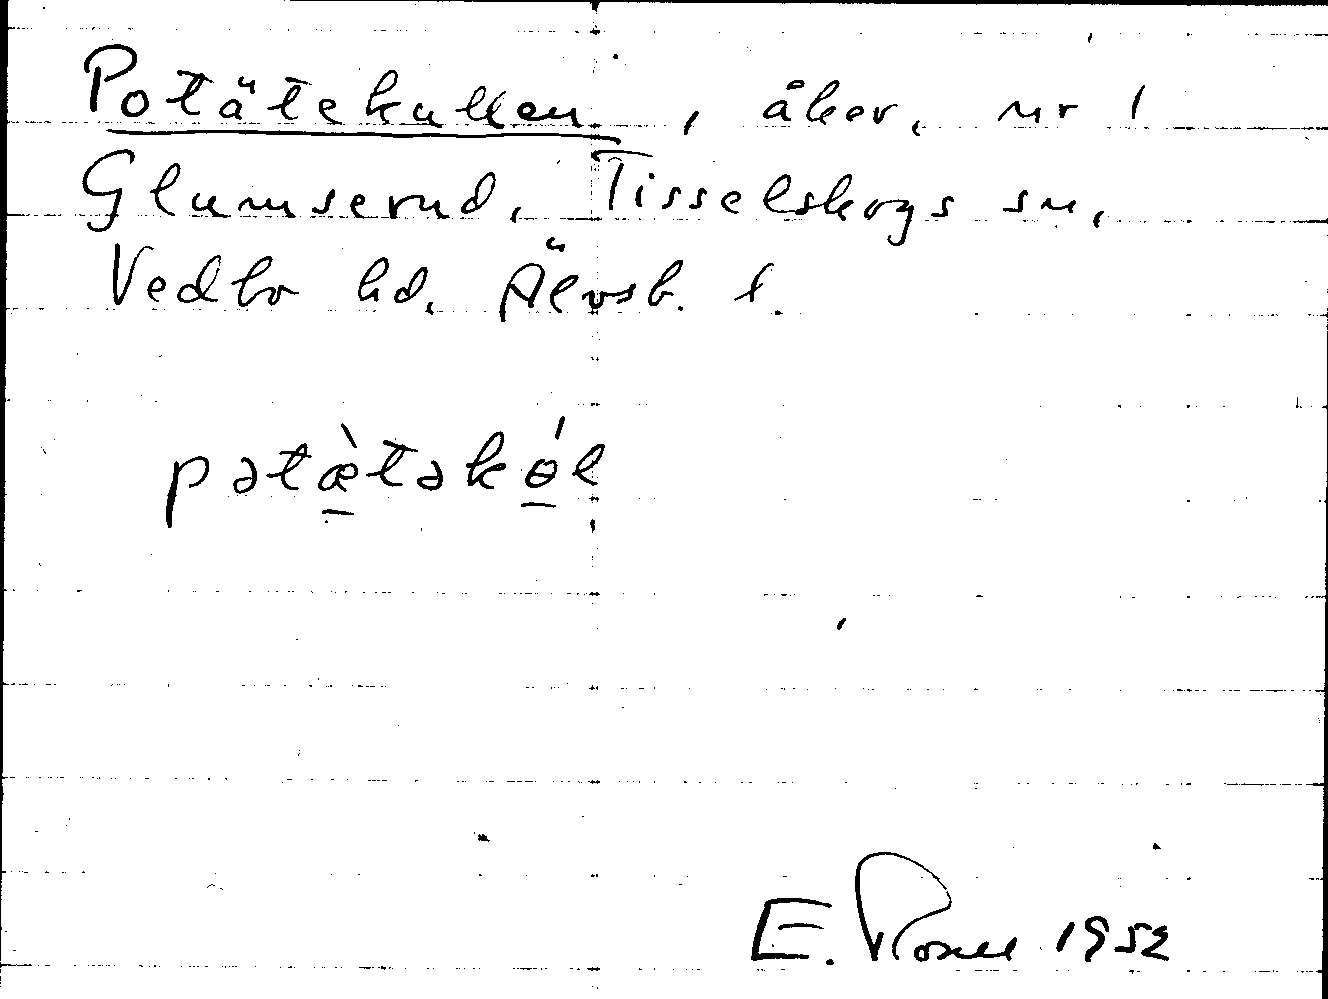 Potätekullen, åker, nr 1
Glumserud, Tisselskogs sn,
Vedbo hd, Älvsb. l.
pətæ̀təkɵ́l
E. Rosell 1952